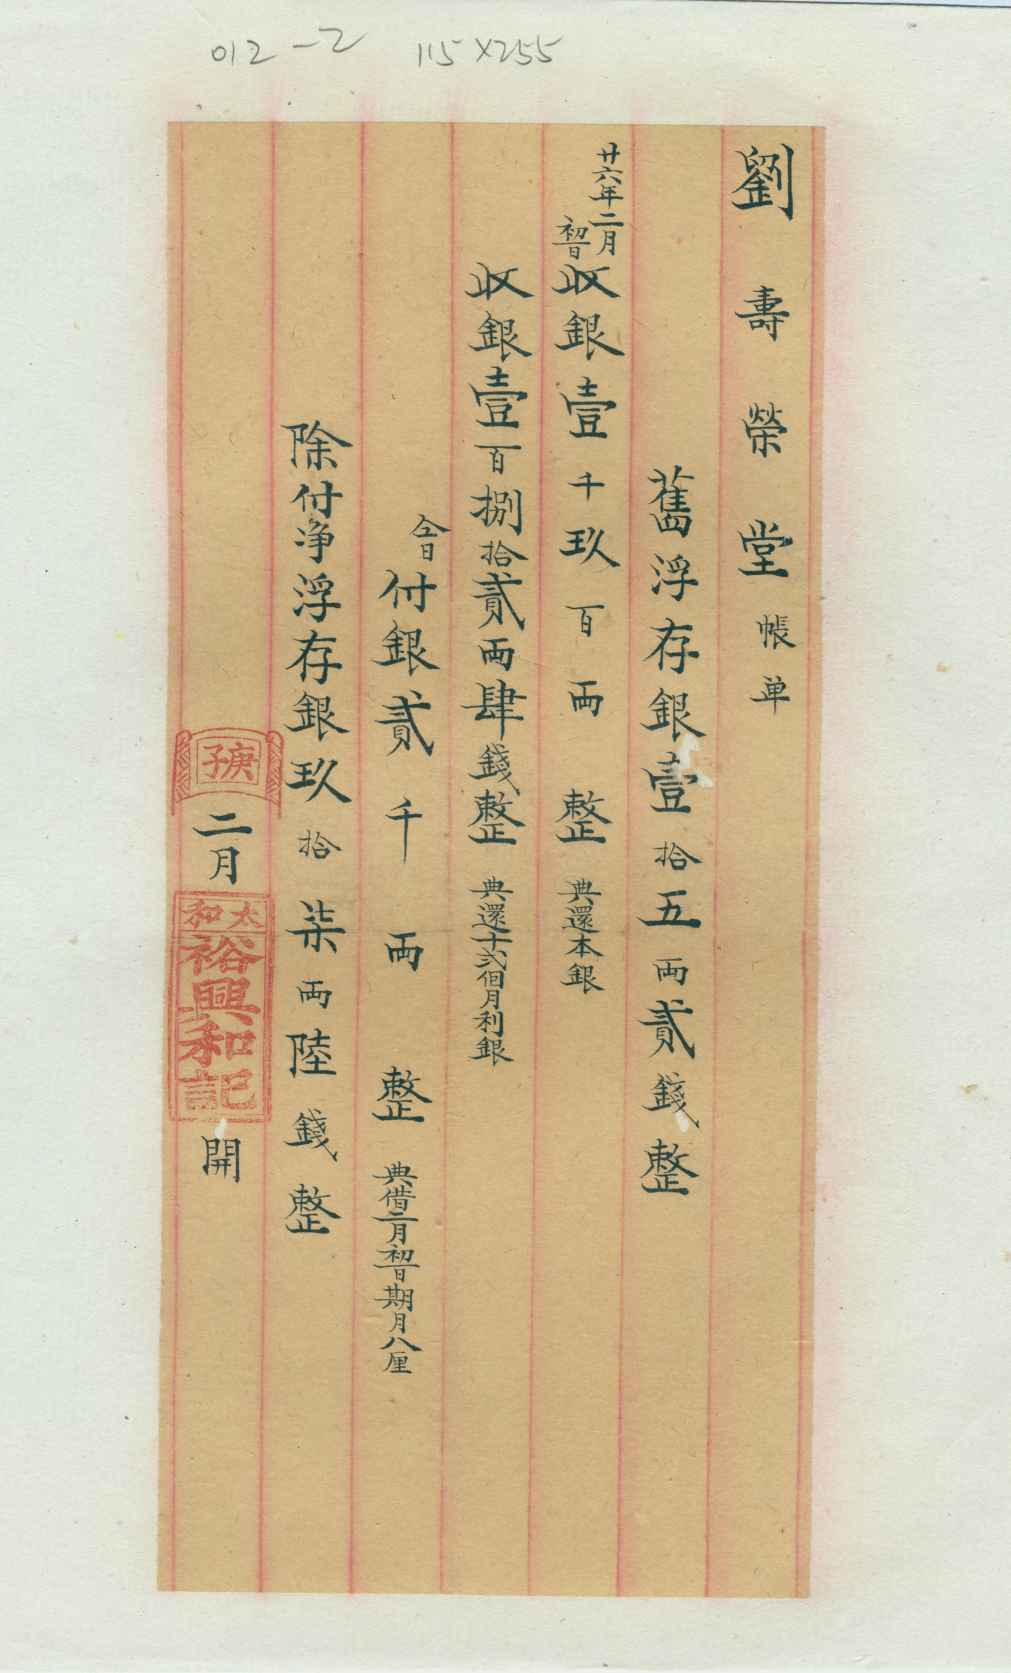 012-2 115×255
劉壽榮堂帳单
舊浮存銀壹拾五两貳錢整
廿六年二月初一日收銀壹千玖百两整典還本銀
收銀壹百捌拾貳两肆錢整典還十弍個月利銀
今日付銀貳千两整典借二月初一日期月八厘
除付净浮存銀玖拾柒两陸錢整
庚子二月太和裕興和記開